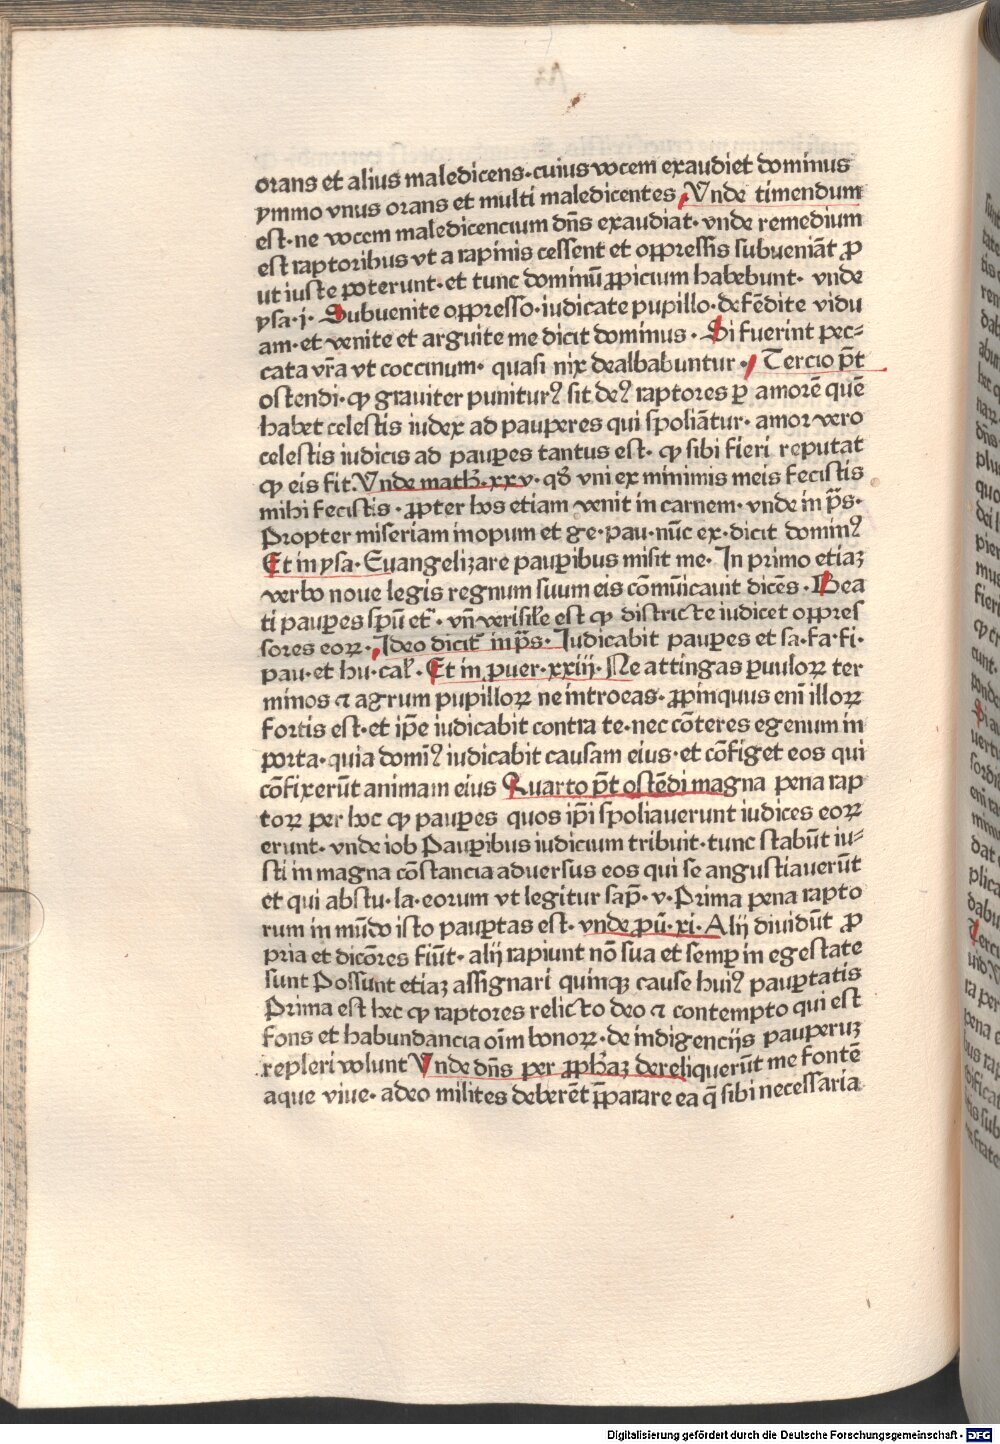 orans et alius maledicens·cuius vocem exaudiet dominus
ymmo vnus orans et multi maledicentes Vnde timendum
est·ne vocem maledicencium dn̄s exaudiat·vnde remedium
est raptoribus vt a rapinis cessent et oꝑpressis subueniāt ꝓ
ut iuste poterunt·et tunc dominū ꝓpicium habebunt· vnde
ysa·i· Subuenite oppresso·iudicate pupillo·defēdite vidu
am·et venite et arguite me dicit dominus· Si fuerint pec⸗
cata vr̄a vt coccinum· quasi nix dealbabuntur· Tercio p̄t
ostendi·ꝙ grauiter puniturꝰ sit deꝰ raptores ꝑ amorē quē
habet celestis iudex ad pauperes qui spoliātur·amor vero
celestis iudicis ad pauꝑes tantus est·ꝙ sibi fieri reputat
ꝙ eis fit.Vnde math̄·xxv·qd̄ vni ex minimis meis fecistis
mihi fecistis·ꝓpter hos etiam venit in carnem·vnde in p̄s·
Propter miseriam inopum et ge·pau·nūc ex·dicit dominꝰ
Et in ysa·Euangelizare pauꝑibus misit me·In primo etiaꝫ
verbo noue legis regnum suum eis cōmūicauit dicēs·Bea
ti pauꝑes sp̄u et̄·vn̄ verisil̄e est ꝙ districte iudicet oppres
sores eoꝝ·Ideo dicit̄ in p̄s·Iudicabit pauꝑes et sa·fa·fi·
pau·et hu·cal̄·Et in puer·xxiij·Ne attingas ꝑuuloꝝ ter
minos ⁊ agrum pupilloꝝ ne introeas·ꝓpinquus enī illoꝝ
fortis est·et ip̄e iudicabit contra te·nec cōteres egenum in
porta·quia domīꝰ iudicabit causam eius·et cōfiget eos qui
cōfixerūt animam eius Quarto p̄t ostēdi magna pena rap
toꝝ per hoc ꝙ pauꝑes quos ip̄i spoliauerunt iudices eoꝝ
erunt·vnde iob Pauꝑibus iudicium tribuit·tunc stabūt iu⸗
sti in magna cōstancia aduersus eos qui se angustiauerūt
et qui abstu·la·eorum vt legitur sap̄·v·Prima pena rapto
rum in mūdo isto pauꝑtas est·vnde ꝓū·xi·Alij diuidūt ꝓ
pria et dicōres fiūt·alij rapiunt nō sua et semꝑ in egestate
sunt Possunt etiaꝫ assignari quinqꝫ cause huiꝰ pauꝑtatis
Prima est hec ꝙ raptores relicto deo ⁊ contempto qui est
fons et habundancia oīm bonoꝝ·de indigencijs pauperuꝫ
repleri volunt Vnde dn̄s per ꝓph̄aꝫ dereliquerūt me fontē
aque viue·adeo milites deberēt p̄parare ea q̄ sibi necessaria
Digitalisierung gefördert durch die Deutsche Forschungsgemeinschaft - DFG